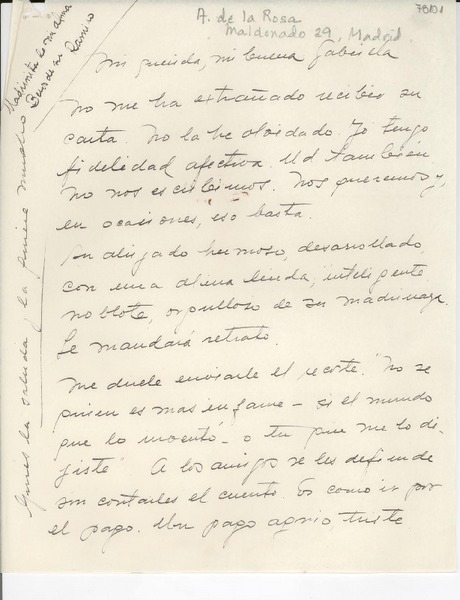 78101
A. de la Rosa
Maldonado 29, Madrid
Mi querida, mi buena Gabriela
No me ha extrañado recibir su
carta. No la he olvidado. Yo tengo
fidelidad afectiva. Ud también
No nos escribimos. Nos queremos y,
en ocasiones, eso basta.
Su ahijado hermoso, desarrollado
con una alma linda, inteligente
noblote, orgulloso de su madrinaza
Le mandará retrato.
Me duele enviarle el recorte. "No se
quien es mas infame - si el mundo
que lo inventó - o tu que me lo di-
jiste" A los amigos se les defiende
sin contarles el cuento. Es como ir por
el pago. Un pago agrio, triste
Gines la saluda, la quiere mucho
Madrinita
Beso de su Ramiro